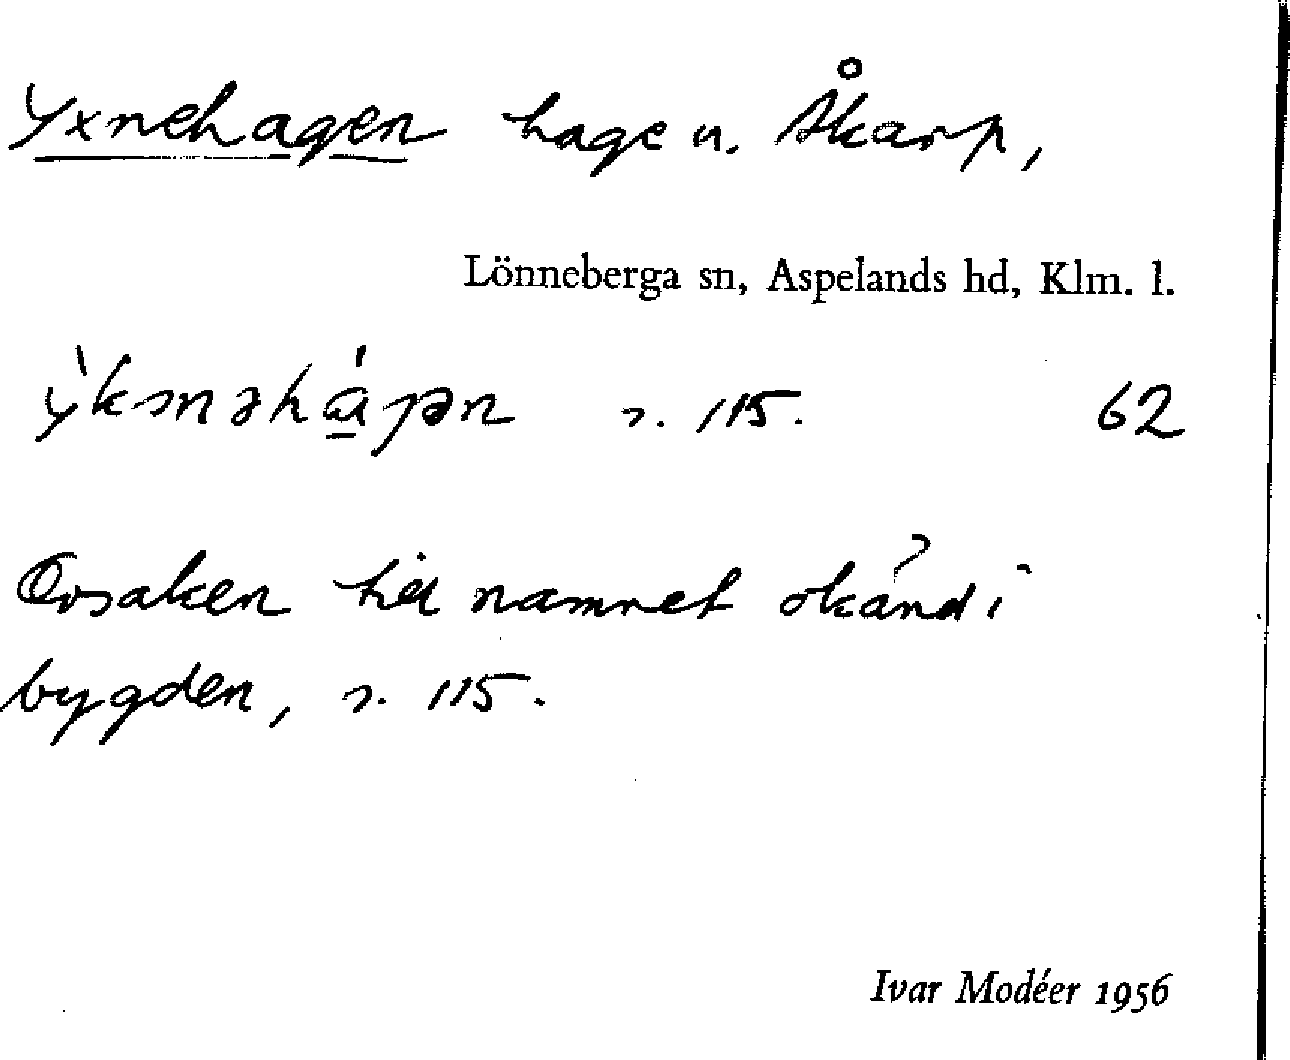 Yxnehagen hage u. Åkarp,
Lönneberga sn, Aspelands hd, Klm. l.
ỳksnəhá̱gən s. 115. 62
Orsaken till namnet okänd i
bygden, s. 115.
Ivar Modéer 1956